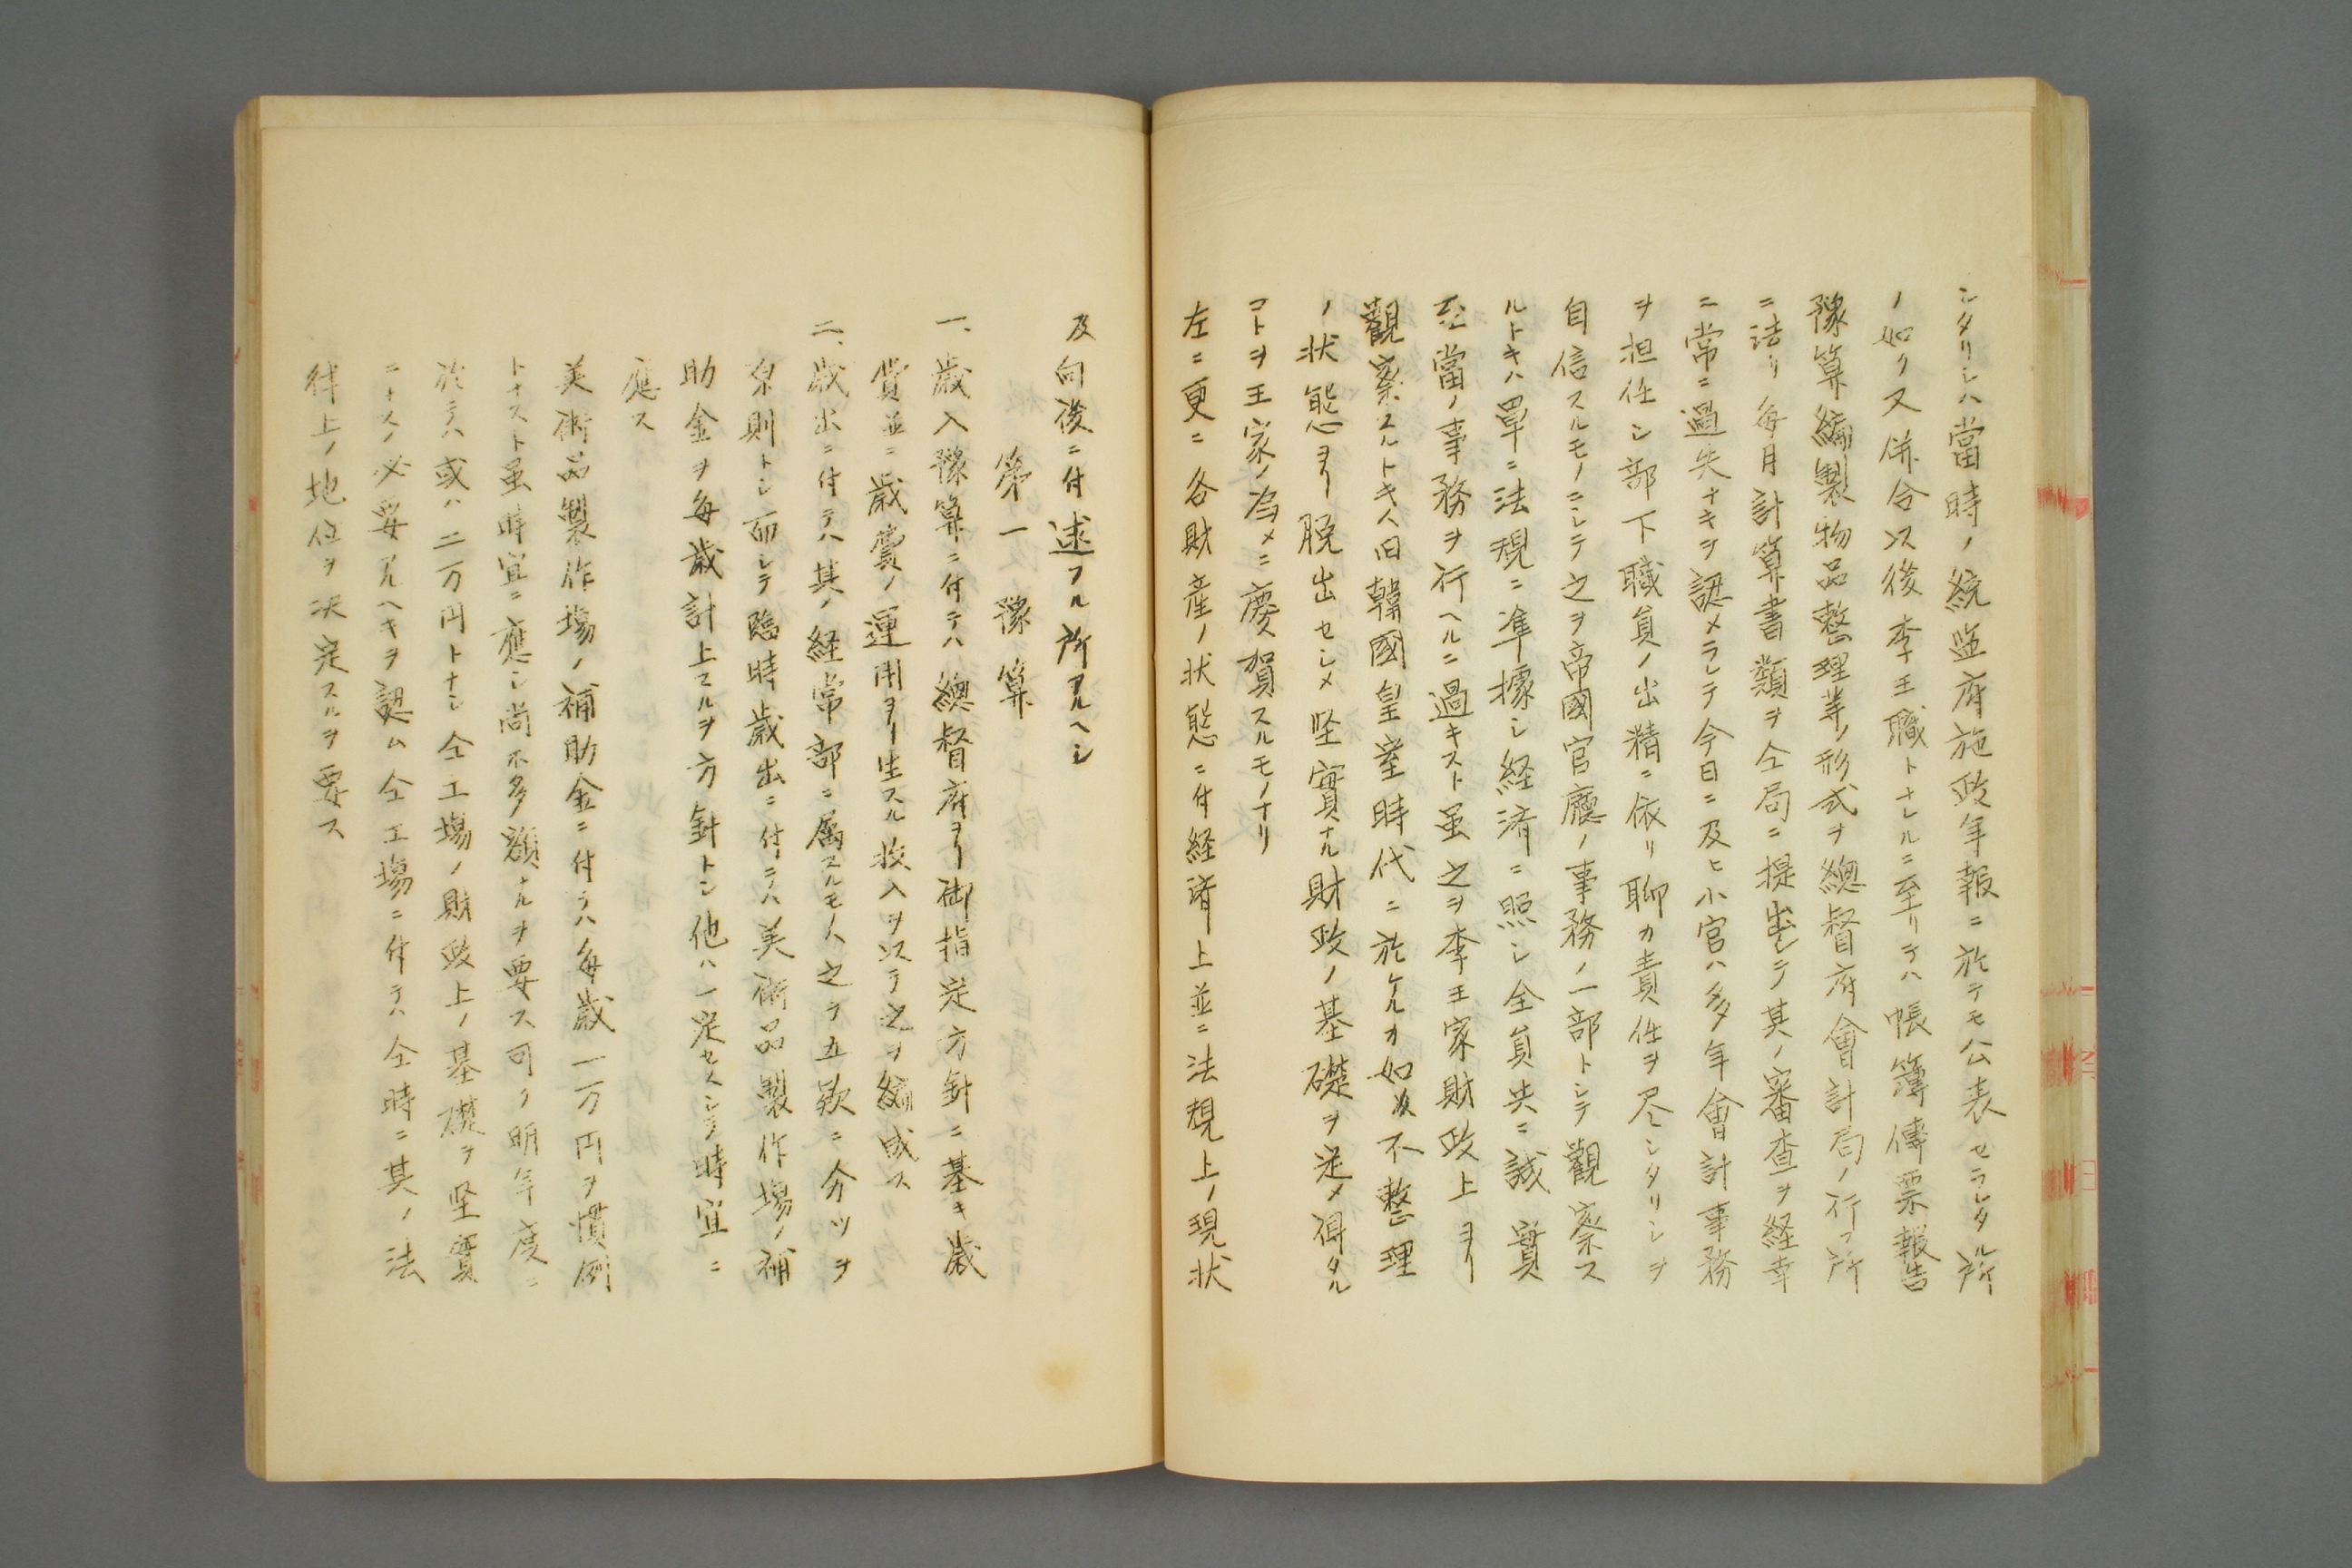 シタリシハ當時ノ統監府施政年報ニ於テモ公表セラレタル所
ノ如リ又併合以後李王職トナレルニ至リテハ帳簿傳票報告
豫算編製物品整理等ノ形式ヲ總督府會計局ノ行フ所
ニ法リ毎月計算書類ヲ仝局ニ提出シテ其ノ審査ヲ経幸
ニ常ニ過失ナキヲ認メラレテ今日ニ及ヒ小官ハ多年會計事務
ヲ担任シ部下職員ノ出精ニ依リ聊カ責任ヲ尽シタリシヲ
自信スルモノニシテ之ヲ帝國官廳ノ事務ノ一部トシテ觀察ス
ルトキハ單ニ法規ニ準據シ経済ニ照シ全員共ニ誠實
當ノ事務ヲ行ヘルニ過キスト虽之ヲ李王家財政上ヨリ
觀察スルトキハ旧韓國皇室時代ニ於ケルカ如キ不整理
ノ状態ヨリ脱出セシメ坚實ナル財政ノ基礎ヲ定メ得タル
コトヲ王家ノ為メニ慶賀スルモノナリ
左ニ更ニ各財産ノ状態ニ付経済上並ニ法規上ノ現状
及向後ニ付述フル所アルヘシ
第一 豫算
一、歳入豫算ニ付テハ總督府ヨリ御指定方針ニ基キ歳
費並ニ歳費ノ運用ヨリ生スル收入ヲ以テ之ヲ編成ス
二、歳出ニ付テハ其ノ経常部ニ属スルモノハ之ヲ五款ニ分ツヲ
原則トシ而シテ臨時歳出ニ付テハ美術品製作場ノ補
助金ヲ毎歳計上スルヲ方針トシ他ハ一定セスシテ時宜ニ
應ス
美術品製作場ノ補助金ニ付テハ毎歳一万円ヲ慣例
トナスト虽時宜ニ應シ尚不多額ナルヲ要ス可ク明年度ニ
於テハ或ハ二万円トナシ仝工場ノ財政上ノ基礎ヲ坚實
ニナスノ必要アルヘキヲ認ム仝工場ニ付テハ仝時ニ其ノ法
律上ノ地位ヲ决定スルヲ要ス